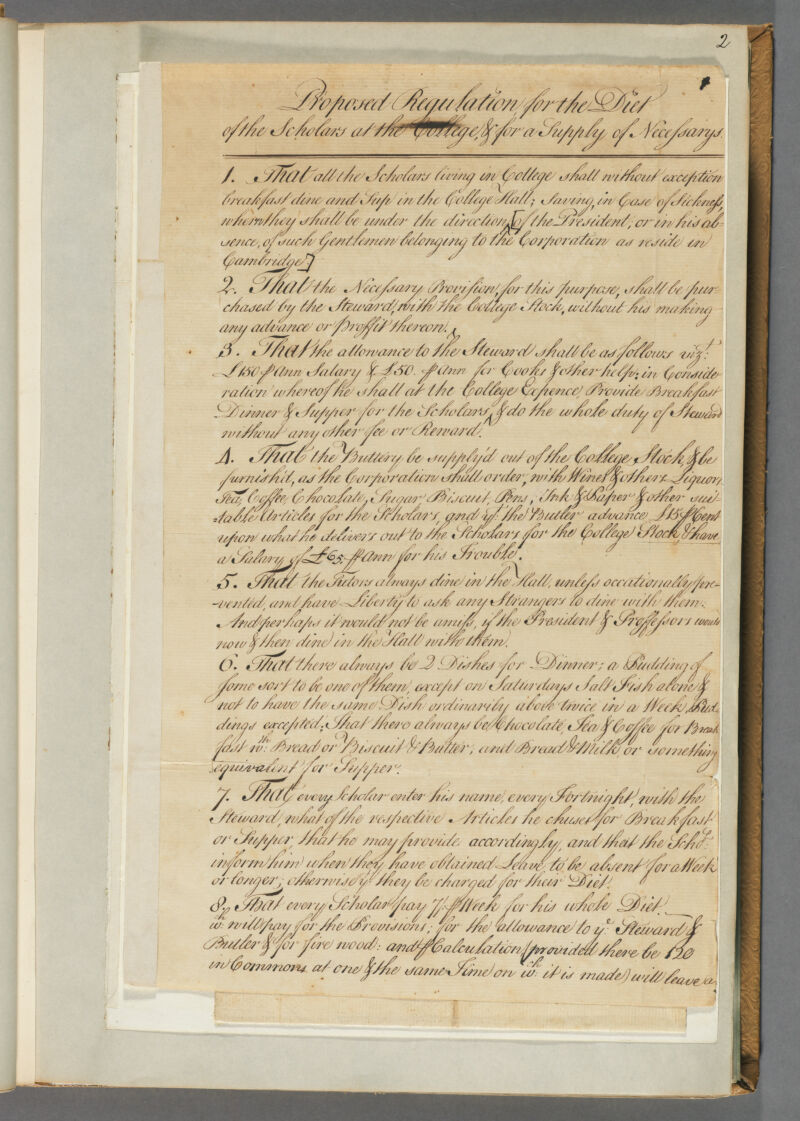 2
Proposed Regulation for the Diet
of the Scholars at the College, & for a Supply of Necessarys
1. That all the Scholars living in College shall without exception
breakfast dine and Sup in the College Hall; saving, in Case of Sickness,
when they shall be under the direction [of the President, or in his ab-
sence, of such Gentlemen belonging to the Corporation as reside in
Cambridge]
2. That the Necessary Provision, for this purpose, shall be pur-
chased by the Steward, with the College Stock, without his making
any advance or Proffit thereon.
3. That the allowance to the Steward shall be as follows vizt.
£150 ⅌ Ann Salary & £50. ⅌ Ann for Cooks & other help; in Conside
ration whereof he shall at the College Expence Provide Breakfast
Dinner & Supper for the Scholars, & do the whole duty of Steward
without any other fee or Reward.
4. That the Buttery be supply'd out of the College Stock, & be
furnish'd, as the Corporation shall order, with Wines & other Liquors
Tea, Coffee, Chocolate, Sugar Biscuit, Pens, Ink & Paper & other sui-
table Articles for the Scholars, and yt. the Butler advance £15 ⅌ Cent
upon what he delivers out to the Scholars for the College Stock & have
a Salary of £65 ⅌ Ann for his Trouble.
5. That the Tutors always dine in the Hall, unless occationally pre-
-vented, and have Liberty to ask any Strangers to dine with them.
And perhaps it would not be amiss, if the President & Proffessors would
now & then dine in the Hall with them.
6. That there always be 2 Dishes for Dinner; a Pudding of
some sort to be one of them, except on Saturdays Salt Fish alone &
not to have the same Dish ordinarily above twice in a Week, Pud
dings excepted; That there always be Chocolate, Tea & Coffee for Break
fast wth. Bread or Biscuit & Butter; and Bread & Milk, or something
equivalent for Supper.
7. That every Scholar enter his name, every Fortnight, with the
Steward, what of the respective Articles he chuses for Breakfast
or Supper, that he may provide accordingly, and that the Scholrs.
inform him when they have obtained Leave, to be absent for a Week
or longer; otherwise yt. they be charged for their Diet.
8. That every Scholar pay 7/ ⅌ Week for his whole Diet.
wh. will pay for the Provisions; for the allowance to ye. Steward &
Butler & for fire wood: and ⅌ Calculation (provided there be 120
in Commons at one & the same Time on wh. it is made) will leave a